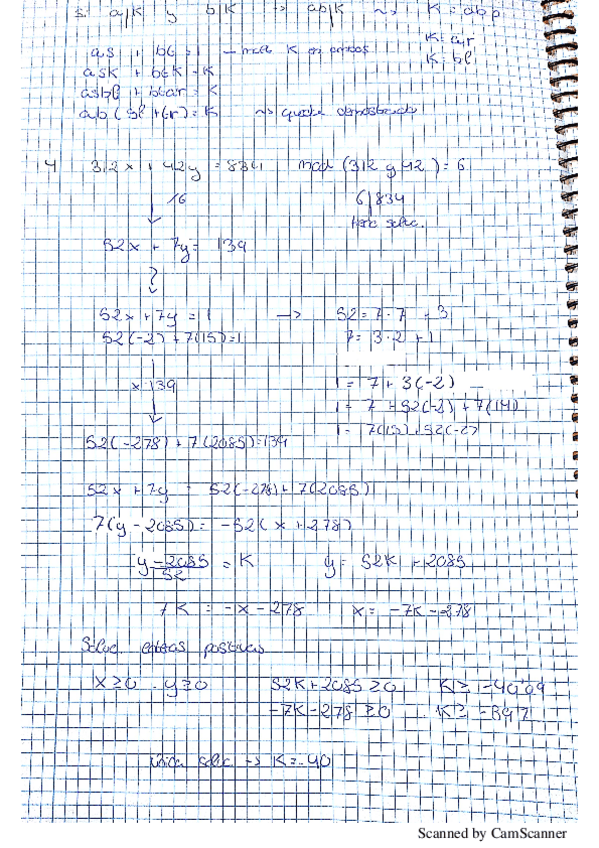 si a|K y b|K → ab|K ~> K = abp
as + bt = 1 — mult K en ambos K = ar
ask + btK = K K = bl
asbl + btar = K
ab (sl + tr) = K ~> queda demostrado
4 312x + 42y = 834 mcd (312 y 42) = 6
/6 6|834
tiene soluc.
52x + 7y = 139
?
52x + 7y = 1 → 52 = 7·7 + 3
52(-2) + 7(15) = 1 7 = 3·2 + 1
x 139 1 = 7 + 3(-2)
1 = 7 + 52(-2) + 7(14)
1 = 7(15) + 52(-2)
52(-278) + 7(2085) = 139
52x + 7y = 52(-278) + 7(2085)
7(y - 2085) = -52(x + 278)
y - 2085 / 52 = K y = 52K + 2085
7K = -x - 278 x = -7K - 278
Soluc enteras positivas
x ≥ 0 . y ≥ 0 52K + 2085 ≥ 0 K ≥ -40'09
-7K - 278 ≥ 0 K ≥ -39'7
única soluc → K = -40
Scanned by CamScanner